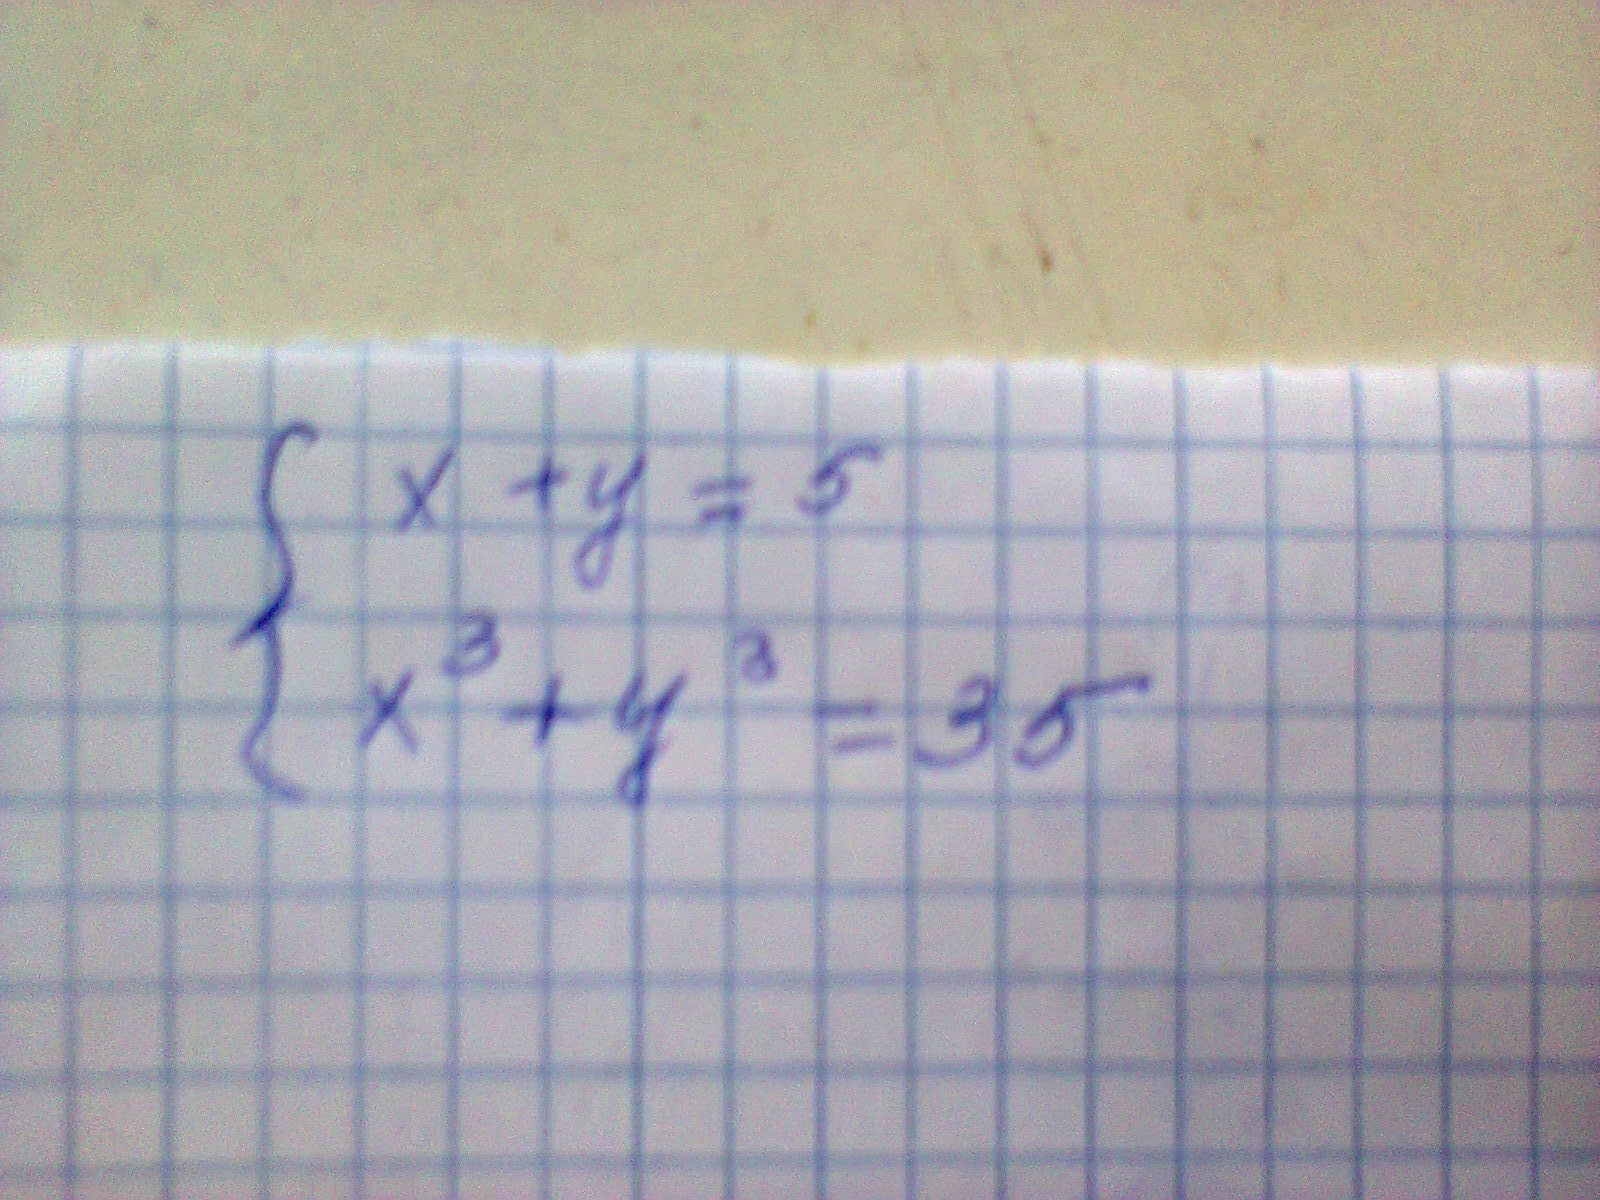 x + y = 5
x³ + y³ = 35